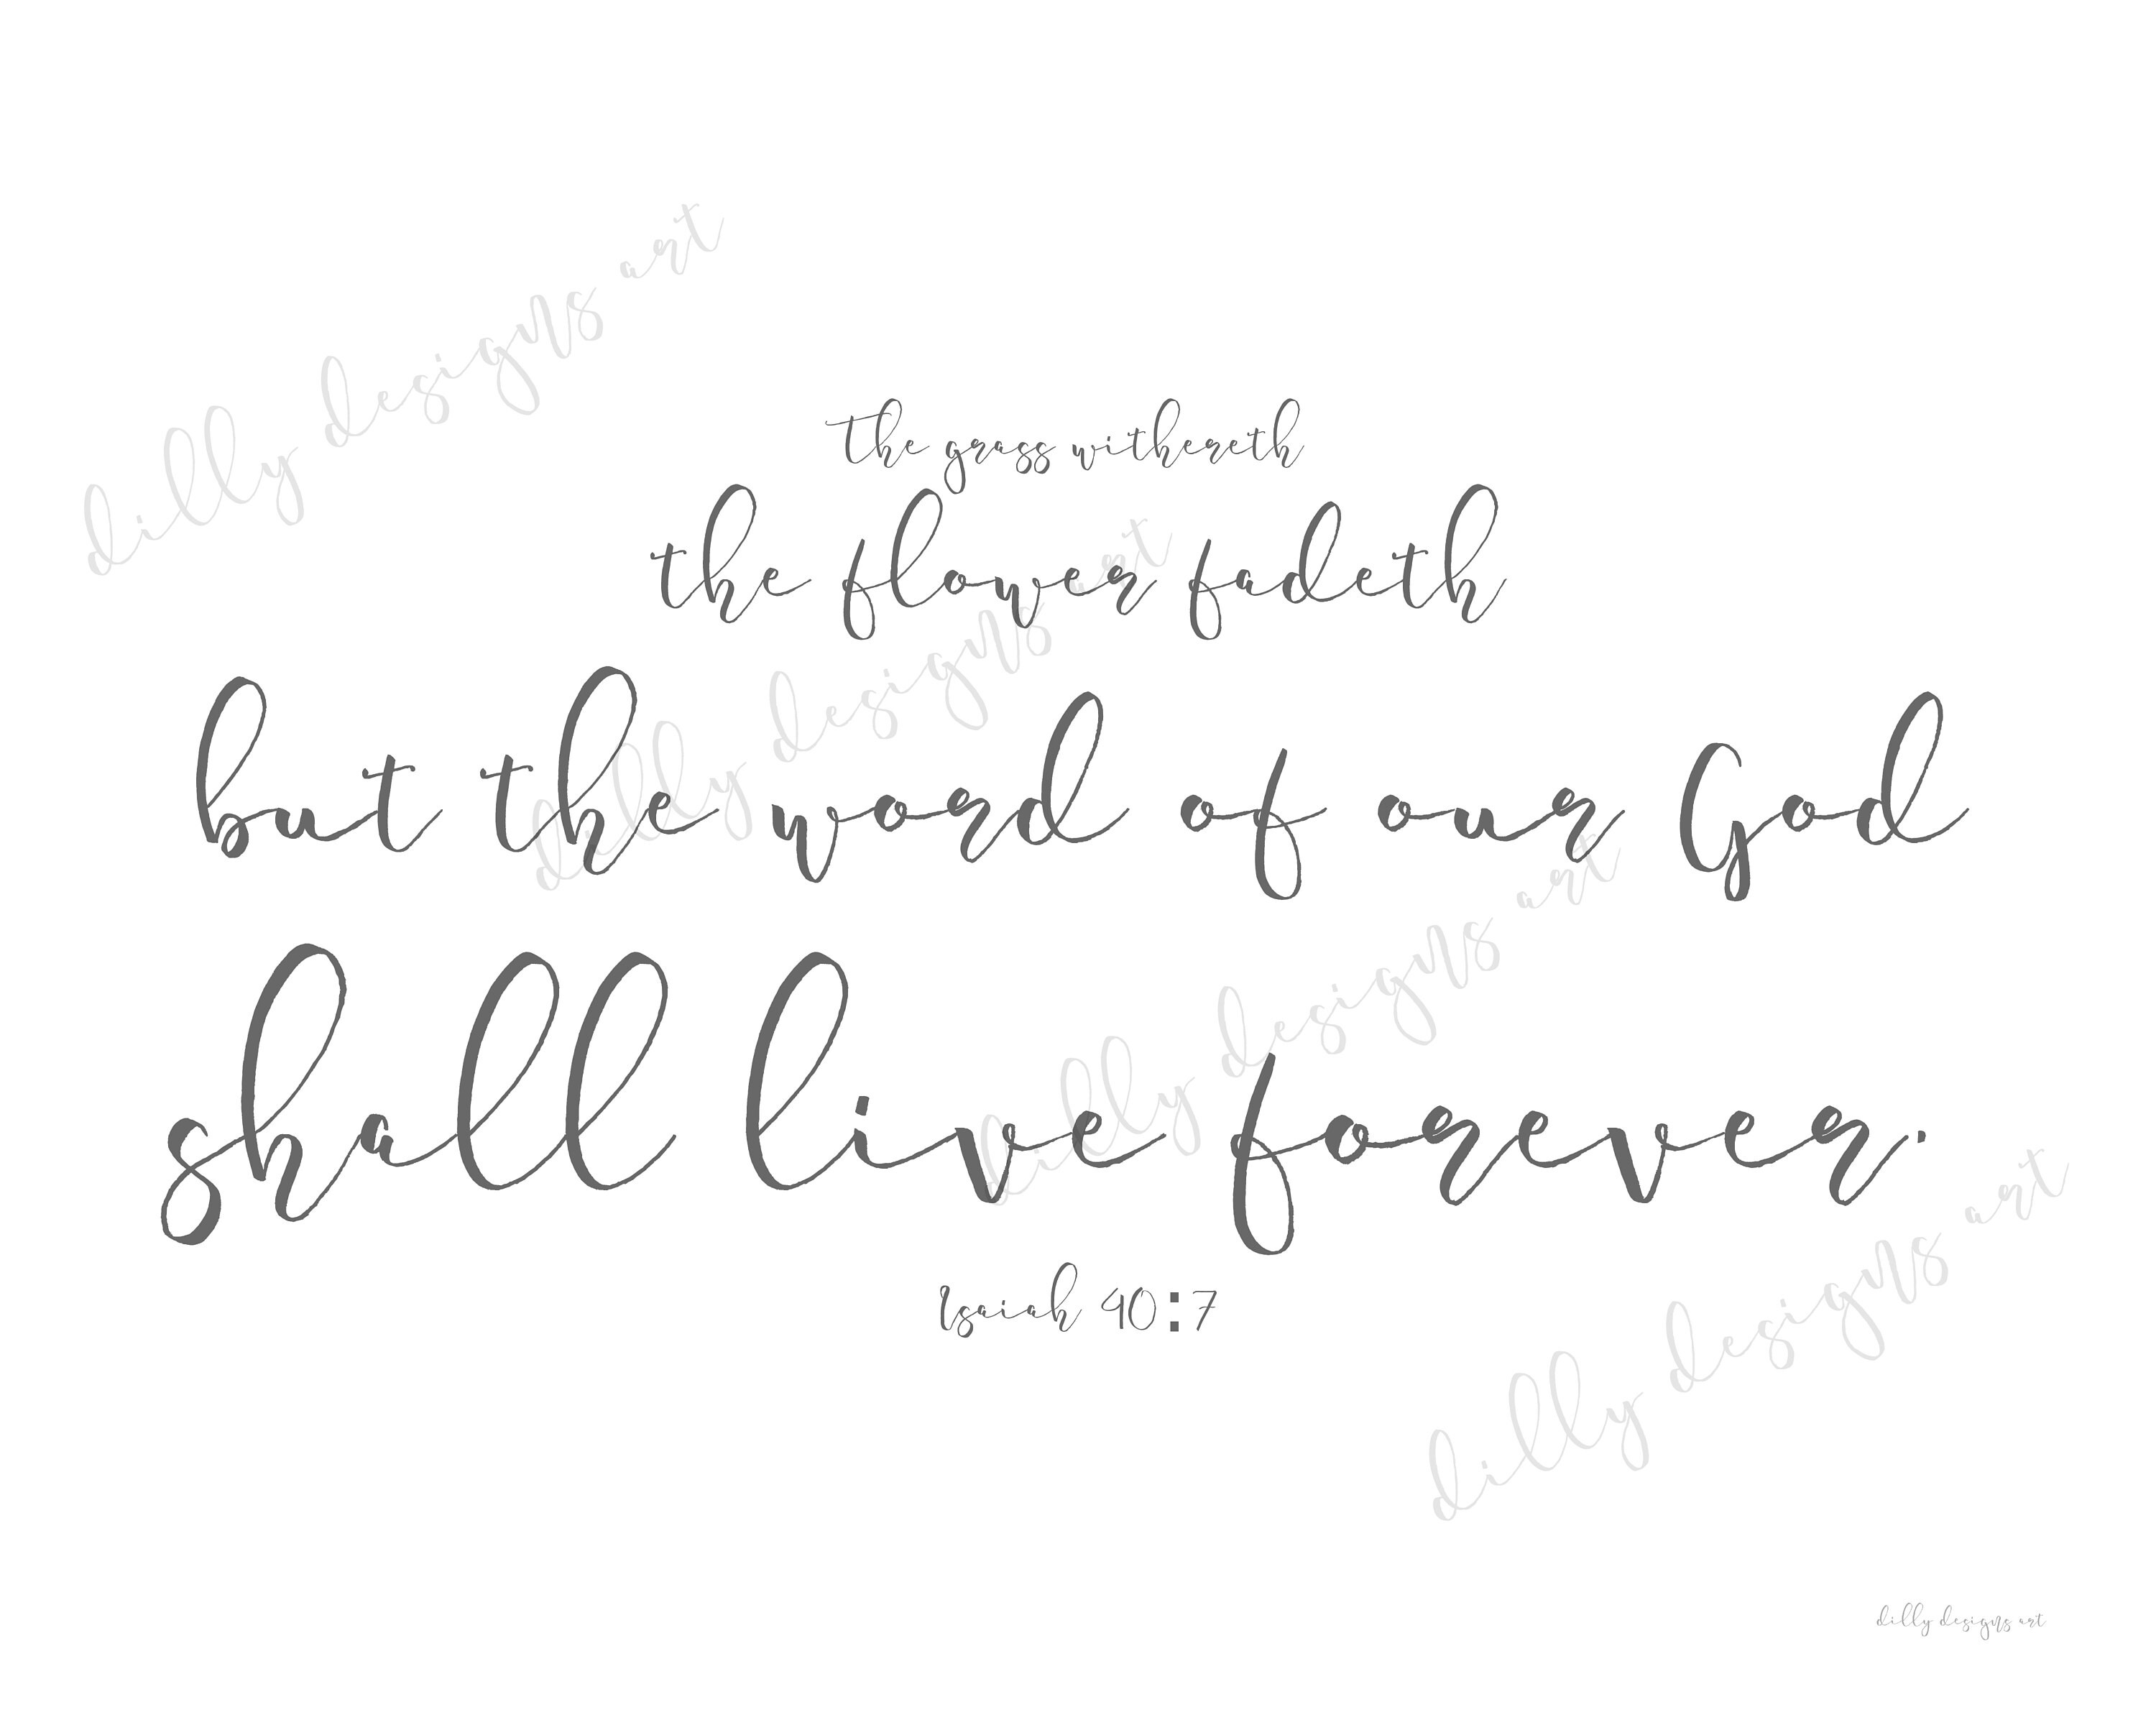 dilly designs art
The grass withereth
the flower fadeth
dilly designs art
but the word of our God
dilly designs art
shall live forever.
Isaiah 40:7
dilly designs art
dilly designs art